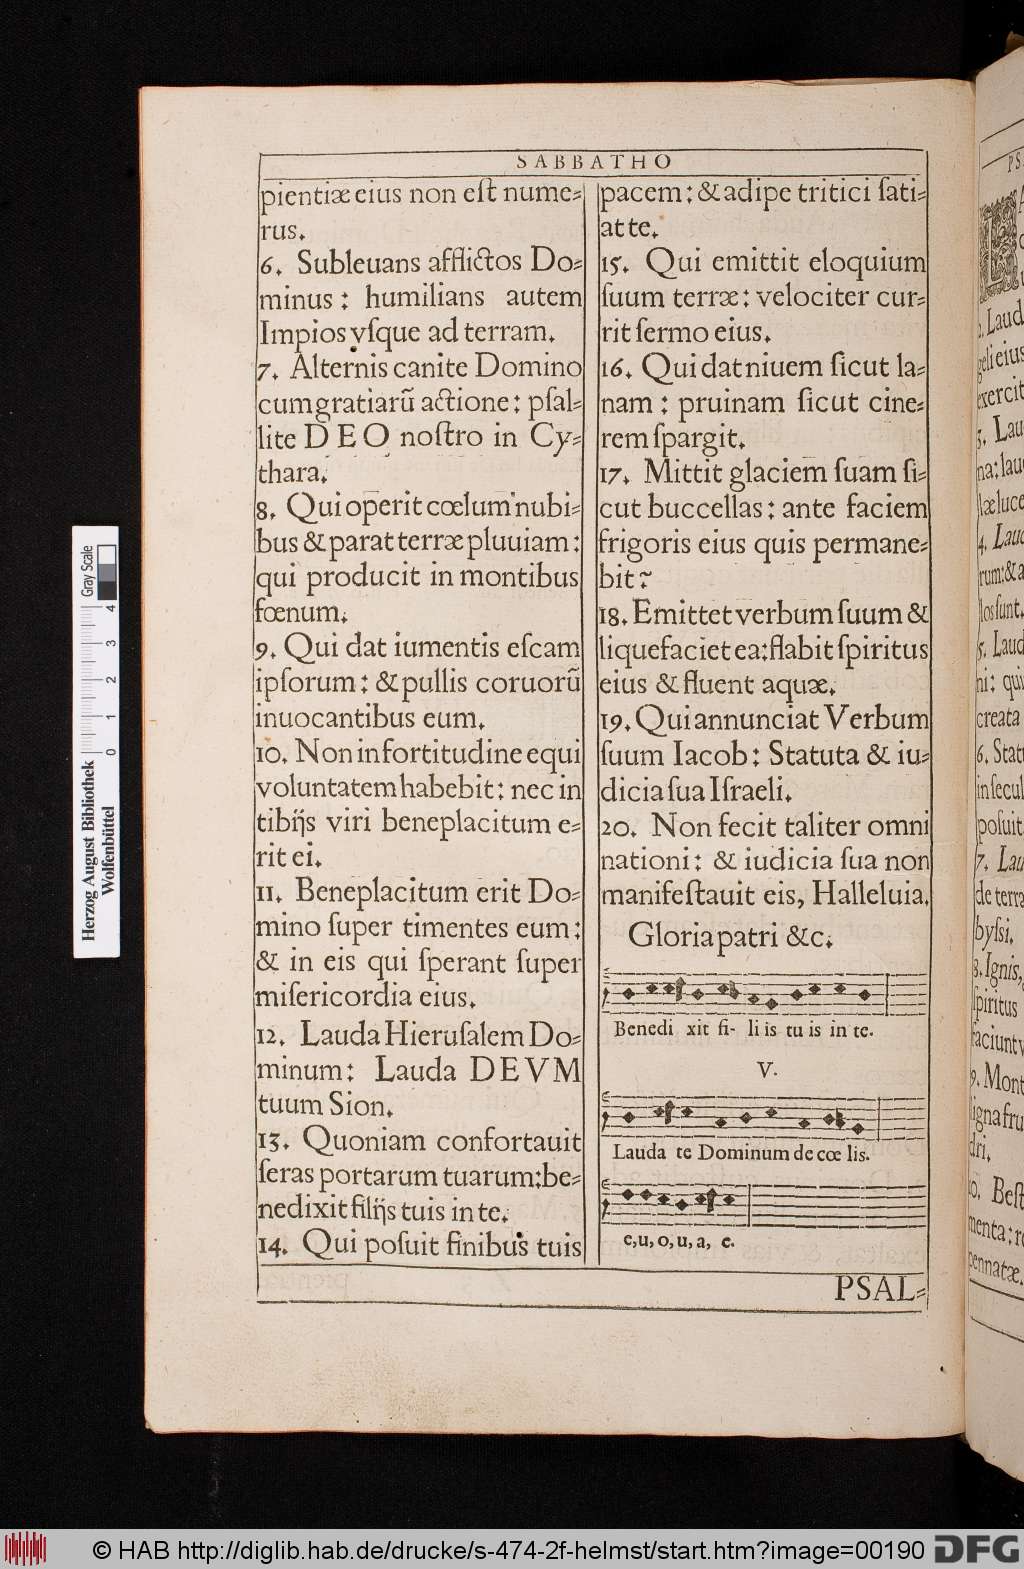 SABBATHO
pientiæ eius non eſt nume-
rus.
6. Subleuans afflictos Do-
minus: humilians autem
Impios vſque ad terram.
7. Alternis canite Domino
cum gratiarũ actione: pſal-
lite DEO noſtro in Cy-
thara.
8. Qui operit cœlum nubi-
bus & parat terræ pluuiam:
qui producit in montibus
fœnum.
9. Qui dat iumentis eſcam
ipſorum: & pullis coruorũ
inuocantibus eum.
10. Non in fortitudine equi
voluntatem habebit: nec in
tibijs viri beneplacitum e-
rit ei.
11. Beneplacitum erit Do-
mino ſuper timentes eum:
& in eis qui ſperant ſuper
miſericordia eius.
12. Lauda Hieruſalem Do-
minum: Lauda DEVM
tuum Sion.
13. Quoniam confortauit
ſeras portarum tuarum: be-
nedixit filijs tuis in te.
14. Qui poſuit finibus tuis
pacem: & adipe tritici ſati-
at te.
15. Qui emittit eloquium
ſuum terræ: velociter cur-
rit ſermo eius.
16. Qui dat niuem ſicut la-
nam: pruinam ſicut cine-
rem ſpargit.
17. Mittit glaciem ſuam ſi-
cut buccellas: ante faciem
frigoris eius quis permane-
bit?
18. Emittet verbum ſuum &
liquefaciet ea: flabit ſpiritus
eius & fluent aquæ.
19. Qui annunciat Verbum
ſuum Iacob: Statuta & iu-
dicia ſua Iſraeli.
20. Non fecit taliter omni
nationi: & iudicia ſua non
manifeſtauit eis, Halleluia.
Gloria patri &c.
Benedi xit fi- li is tu is in te.
V.
Lauda te Dominum de cœ lis.
e, u, o, u, a, e.
PSAL-
PS
2. Laud
geli eius
exercit
3. Lau
na: lau
læ luce
4. Laud
rum: & a
los ſunt.
5. Laud
ni: qui
creata
6. Stat
in ſecul
poſuit
7. Lau
de terra
byſsi.
8. Ignis,
ſpiritus
faciunt v
9. Mont
ligna fru
dri.
10. Beſt
menta: re
pennatæ.
Herzog August Bibliothek
Wolfenbüttel
Gray Scale
0 1 2 3 4
© HAB http://diglib.hab.de/drucke/s-474-2f-helmst/start.htm?image=00190
DFG